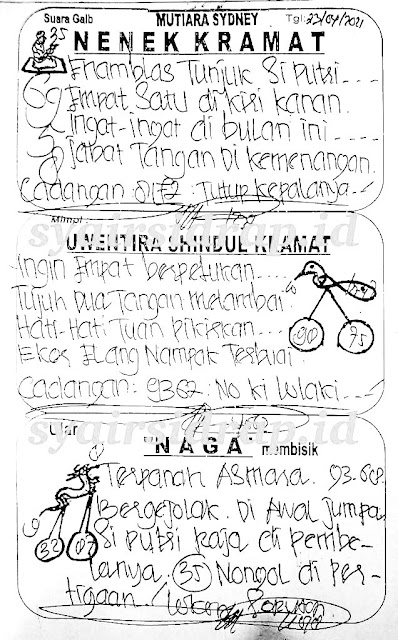 Suara Gaib MUTIARA SYDNEY Tgl: 23/04/2021
35 NENEK KRAMAT
Enamblas Tunjuk Si Putri....
Empat Satu di kiri kanan.
Ingat-ingat di bulan ini....
Jabat Tangan Di kemenangan.
Cadangan: : Tutup kepalanya..
Mimpi:
KRAMAT
Ingin Empat berpelukan....
Tujuh Dua Tangan melambai
Hati-Hati Tuan Pikirkan....
Ekor Elang Nampak Terburai
90 75
Cadangan: 9362: No ki lwlaki...
syairsidrap.id
Ular "NAGA" membisik
Terpanah Asmara. 93.
Bergejolak. Di Awal jumpa
Si putri Raja di pembe-
lanya. 35 Nongol di Per-
tigaan.
32 07